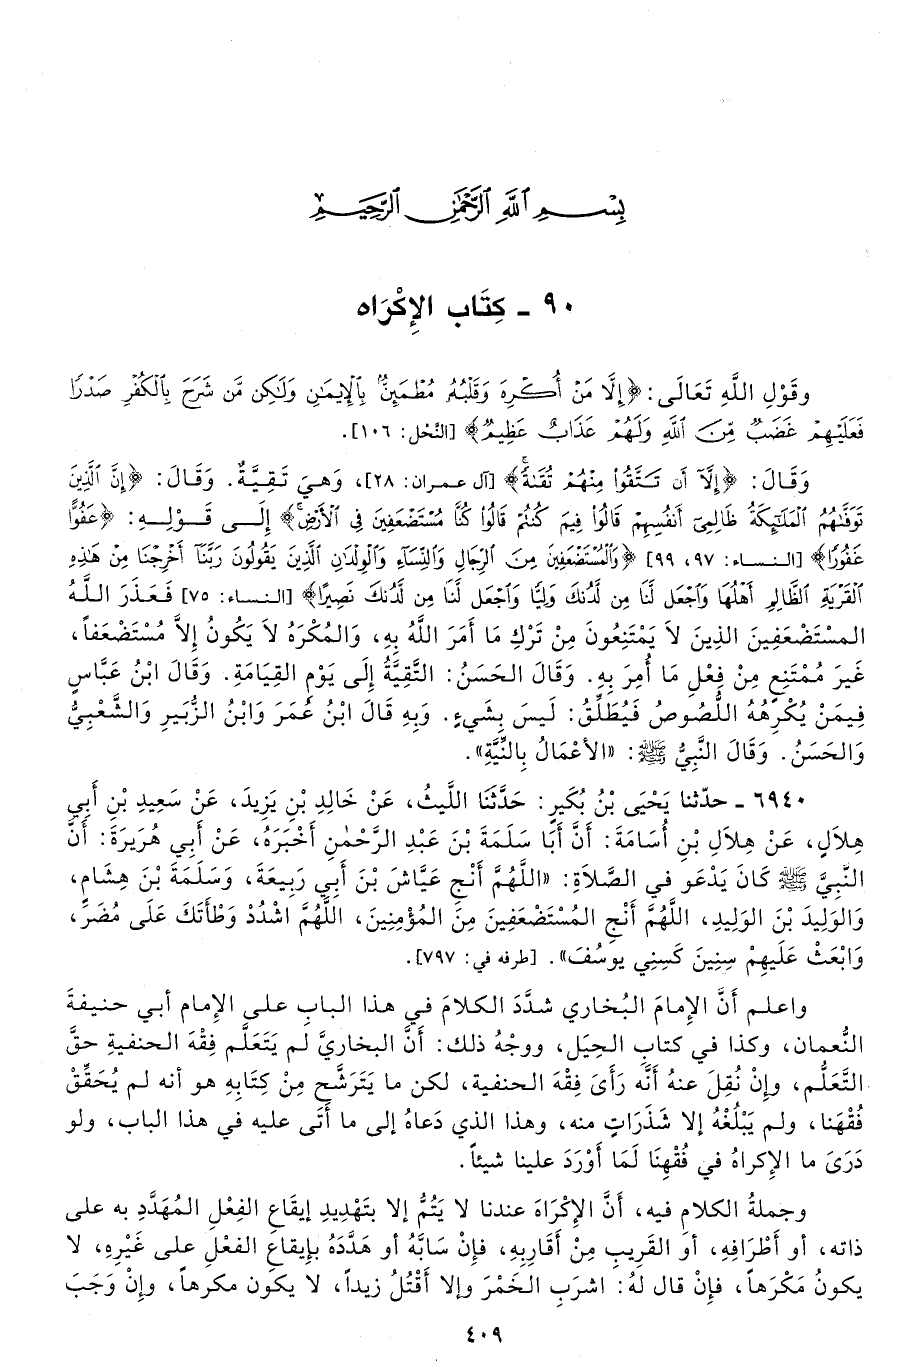 بِسْمِ ٱللَّهِ ٱلرَّحْمَٰنِ ٱلرَّحِيمِ
٩٠ - كِتَاب الإِكْرَاه
وقَوْلِ اللَّهِ تَعَالَى: ﴿إِلَّا مَنْ أُكْرِهَ وَقَلْبُهُ مُطْمَئِنٌّ بِٱلْإِيمَٰنِ وَلَٰكِن مَّن شَرَحَ بِٱلْكُفْرِ صَدْرًا
فَعَلَيْهِمْ غَضَبٌ مِّنَ ٱللَّهِ وَلَهُمْ عَذَابٌ عَظِيمٌ﴾ [النَّحل: ١٠٦].
وَقَالَ: ﴿إِلَّآ أَن تَتَّقُوا۟ مِنْهُمْ تُقَىٰةً﴾ [آل عمران: ٢٨]، وَهيَ تَقِيَّةٌ. وَقَالَ: ﴿إِنَّ ٱلَّذِينَ
تَوَفَّىٰهُمُ ٱلْمَلَٰٓئِكَةُ ظَالِمِىٓ أَنفُسِهِمْ قَالُوا۟ فِيمَ كُنتُمْ قَالُوا۟ كُنَّا مُسْتَضْعَفِينَ فِى ٱلْأَرْضِ﴾ إِلَى قَوْلِهِ: ﴿عَفُوًّا
غَفُورًا﴾ [النساء: ٩٧، ٩٩] ﴿وَٱلْمُسْتَضْعَفِينَ مِنَ ٱلرِّجَالِ وَٱلنِّسَآءِ وَٱلْوِلْدَٰنِ ٱلَّذِينَ يَقُولُونَ رَبَّنَآ أَخْرِجْنَا مِنْ هَٰذِهِ
ٱلْقَرْيَةِ ٱلظَّالِمِ أَهْلُهَا وَٱجْعَل لَّنَا مِن لَّدُنكَ وَلِيًّا وَٱجْعَل لَّنَا مِن لَّدُنكَ نَصِيرًا﴾ [النساء: ٧٥] فَعَذَرَ اللَّهُ
المسْتَضْعَفِينَ الذِينَ لاَ يَمْتَنِعُونَ مِنْ تَرْكِ مَا أَمَرَ اللَّهُ بِهِ، وَالمُكْرَهُ لاَ يَكُونُ إِلاَّ مُسْتَضْعَفاً،
غَيرَ مُمْتَنِعٍ مِنْ فِعْلِ مَا أُمِرَ بِهِ. وَقَالَ الحَسَنُ: التَّقِيَّةُ إِلَى يَوْمِ القِيَامَةِ. وَقَالَ ابْنُ عَبَّاسٍ
فِيمَنْ يُكْرِهُهُ اللُّصُوصُ فَيُطَلِّقُ: لَيسَ بِشَيءٍ. وَبِهِ قَالَ ابْنُ عُمَرَ وَابْنُ الزُّبَيرِ وَالشَّعْبِيُّ
وَالحَسَنُ. وَقَالَ النَّبِيُّ ﷺ: «الأَعْمَالُ بِالنِّيَّةِ».
٦٩٤٠ - حدّثنا يَحْيَى بْنُ بُكَيرٍ: حَدَّثَنَا اللَّيثُ، عَنْ خَالِدِ بْنِ يَزِيدَ، عَنْ سَعِيدِ بْنِ أَبِي
هِلاَلٍ، عَنْ هِلاَلِ بْنِ أُسَامَةَ: أَنَّ أَبَا سَلَمَةَ بْنَ عَبْدِ الرَّحْمٰنِ أَخْبَرَهُ، عَنْ أَبِي هُرَيرَةَ: أَنَّ
النَّبِيَّ ﷺ كَانَ يَدْعُو في الصَّلاَةِ: «اللَّهُمَّ أَنْجِ عَيَّاشَ بْنَ أَبِي رَبِيعَةَ، وَسَلَمَةَ بْنَ هِشَامٍ،
وَالوَلِيدَ بْنَ الوَلِيدِ، اللَّهُمَّ أَنْجِ المُسْتَضْعَفِينَ مِنَ المُؤْمِنِينَ، اللَّهُمَّ اشْدُدْ وَطْأَتَكَ عَلَى مُضَرَ،
وَابْعَثْ عَلَيهِمْ سِنِينَ كَسِنِي يوسُفَ». [طرفه في: ٧٩٧].
واعلم أَنَّ الإِمامَ البُخاري شدَّدَ الكلامَ في هذا البابِ على الإِمام أبي حنيفةَ
النُّعمان، وكذا في كتابِ الحِيَل، ووجْهُ ذلك: أَنَّ البخاريَّ لم يَتَعلَّم فِقْهَ الحنفيةِ حقَّ
التَّعلُّم، وإِنْ نُقِلَ عنهُ أنَّه رَأَىٰ فِقْهَ الحنفية، لكن ما يَتَرشَّح مِنْ كتابِه هو أنه لم يُحَقِّقْ
فُقْهَنا، ولم يَبْلُغْهُ إلا شَذَراتٍ منه، وهذا الذي دَعاهُ إلى ما أَتَى عليه في هذا الباب، ولو
دَرَىَ ما الإِكراهُ في فُقْهِنَا لَمَا أَوْرَدَ علينا شيئاً.
وجملةُ الكلامِ فيه، أَنَّ الإِكْرَاهَ عندنا لا يَتُمُّ إلا بتَهْدِيدِ إيقَاعِ الفِعْلِ المُهَدَّدِ به على
ذاته، أو أَطْرافِهِ، أوِ القريبِ مِنْ أَقارِبِهِ، فإِنْ سَابَّهُ أو هَدَّدَهُ بإيقاعِ الفعْلِ على غَيْرِهِ، لا
يكونُ مَكْرَهاً، فإنْ قال لهُ: اشرَبِ الخَمْرَ وإلا أَقْتُلُ زيداً، لا يكون مكرهاً، وإنْ وَجَبَ
٤٠٩